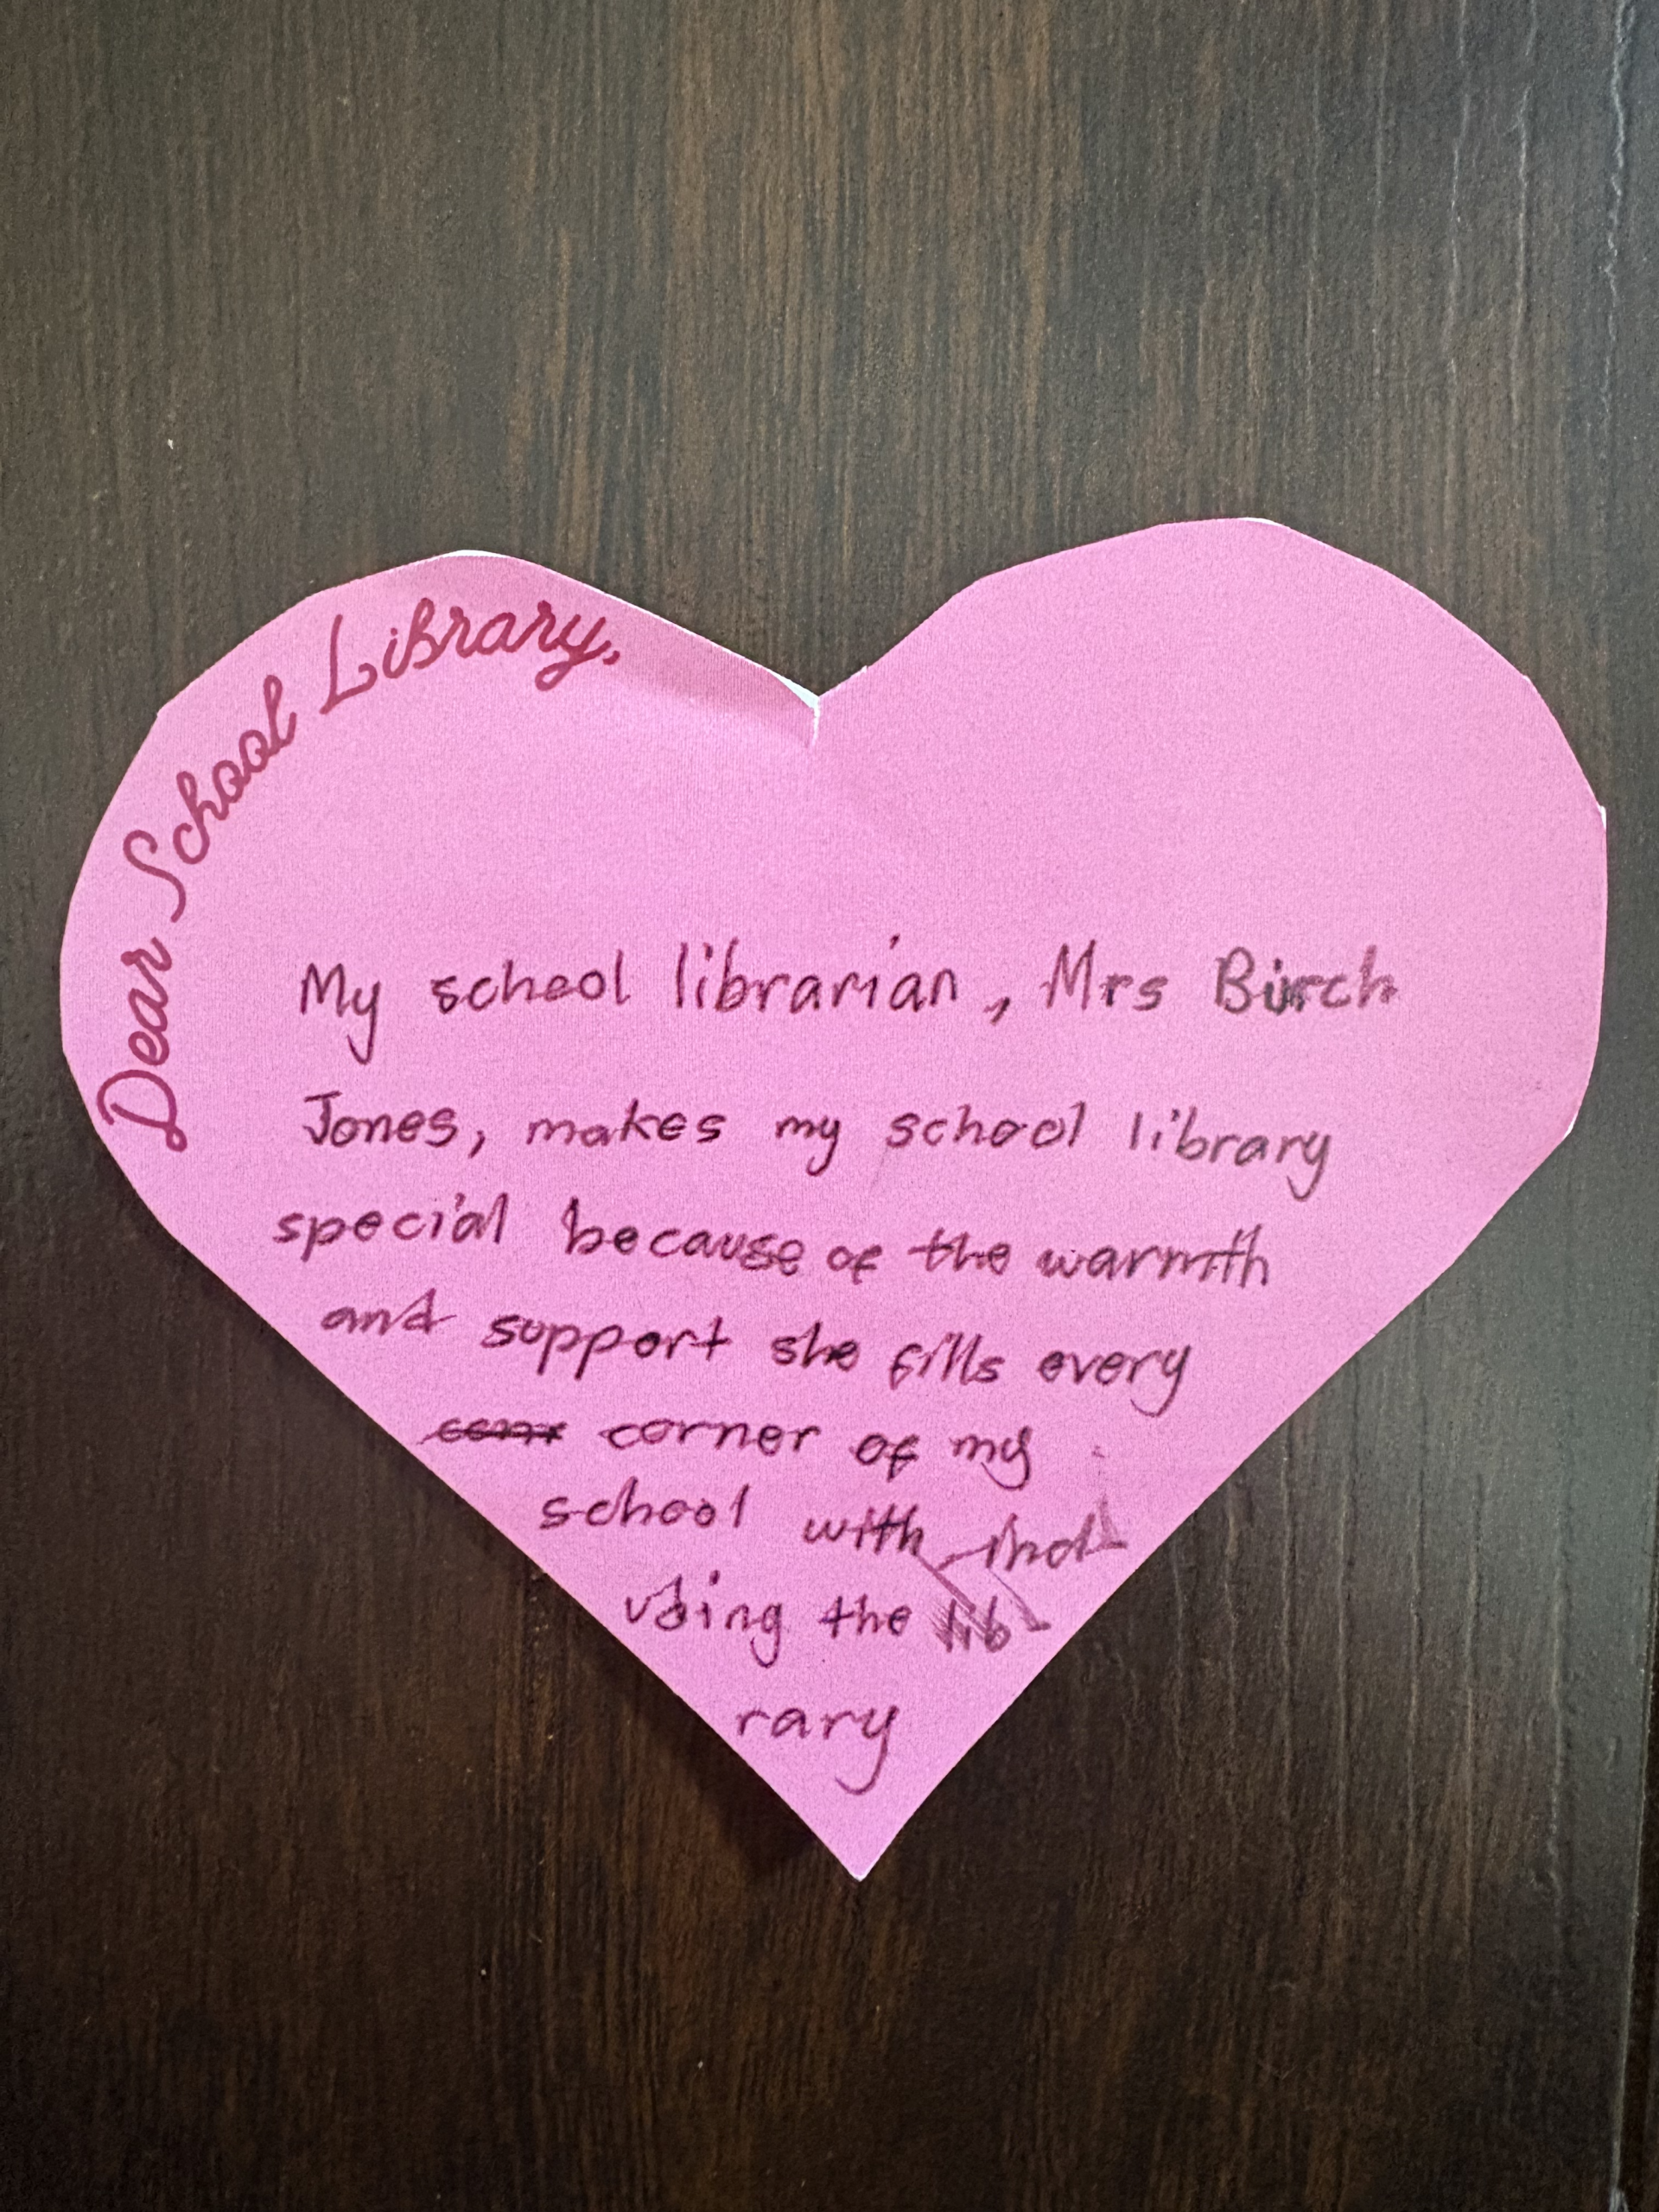 Dear School Library,
My school librarian, Mrs Birch
Jones, makes my school library
special because of the warmth
and support she fills every
corner of my
school with
using the lib
rary